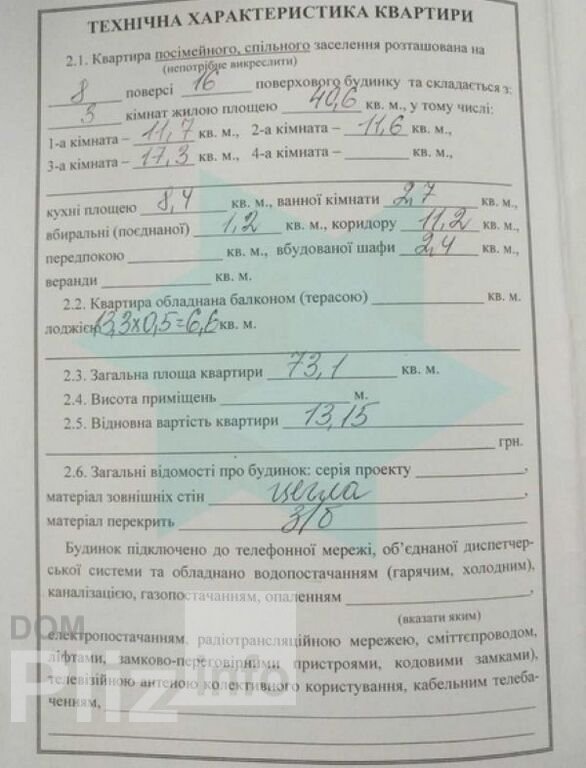 ТЕХНІЧНА ХАРАКТЕРИСТИКА КВАРТИРИ
2.1. Квартира посімейного, спільного заселення розташована на
(непотрібне викреслити)
8 поверсі 16 поверхового будинку та складається з:
3 кімнат жилою площею 40,6 кв. м., у тому числі:
1-а кімната – 11,7 кв. м., 2-а кімната – 11,6 кв. м.,
3-а кімната – 17,3 кв. м., 4-а кімната – кв. м.,
кухні площею 8,4 кв. м., ванної кімнати 2,7 кв. м.,
вбиральні (поєднаної) 1,2 кв. м., коридору 11,2 кв. м.,
передпокою кв. м., вбудованої шафи 2,4 кв. м.,
веранди кв. м.
2.2. Квартира обладнана балконом (терасою) кв. м.
лоджією 13,3х0,5=6,6 кв. м.
2.3. Загальна площа квартири 73,1 кв. м.
2.4. Висота приміщень м.
2.5. Відновна вартість квартири 13,15
грн.
2.6. Загальні відомості про будинок: серія проекту ,
матеріал зовнішніх стін цегла
матеріал перекрить З/б
Будинок підключено до телефонної мережі, об’єднаної диспетчер-
ської системи та обладнано водопостачанням (гарячим, холодним),
каналізацією, газопостачанням, опаленням ,
(вказати яким)
електропостачанням, радіотрансляційною мережею, сміттєпроводом,
ліфтами, замково-переговірними пристроями, кодовими замками),
телевізійною антеною колективного користування, кабельним телеба-
ченням,
DOM
Pliz info